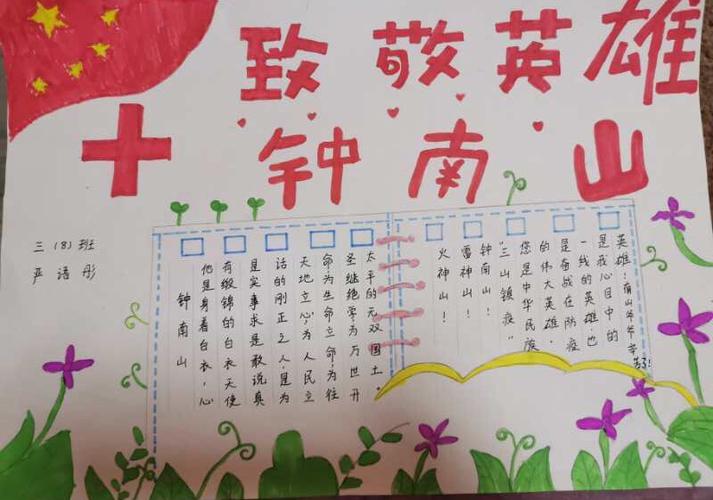 致敬英雄
钟南山
三(8)班
严语彤
钟南山
他是身着白衣,心
有缎锦的白衣天使
是实事求是敢说真
话的刚正之人,是为
天地立心,为人民立
命,为生命立命,为往
圣继绝学,为万世开
太平的无双国士.
火神山!
雷神山!
钟南山!
“三山镇疫”
您是中华民族
的伟大英雄.
是奋战在防疫
一线的英雄,也
是我心目中的
英雄!南山爷爷辛苦了!